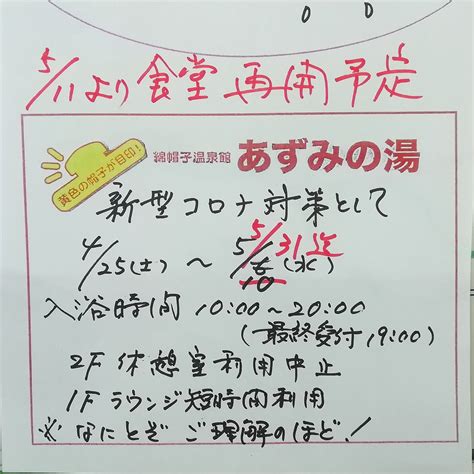 5/11より食堂再開予定
黄色の帽子が目印!
綿帽子温泉館 あずみの湯
新型コロナ対策として
4/25(土)~5/31迄
5/6(水)
10
入浴時間 10:00~20:00
(最終受付19:00)
2F休憩室利用中止
1Fラウンジ短時間利用
※なにとぞご理解のほど!